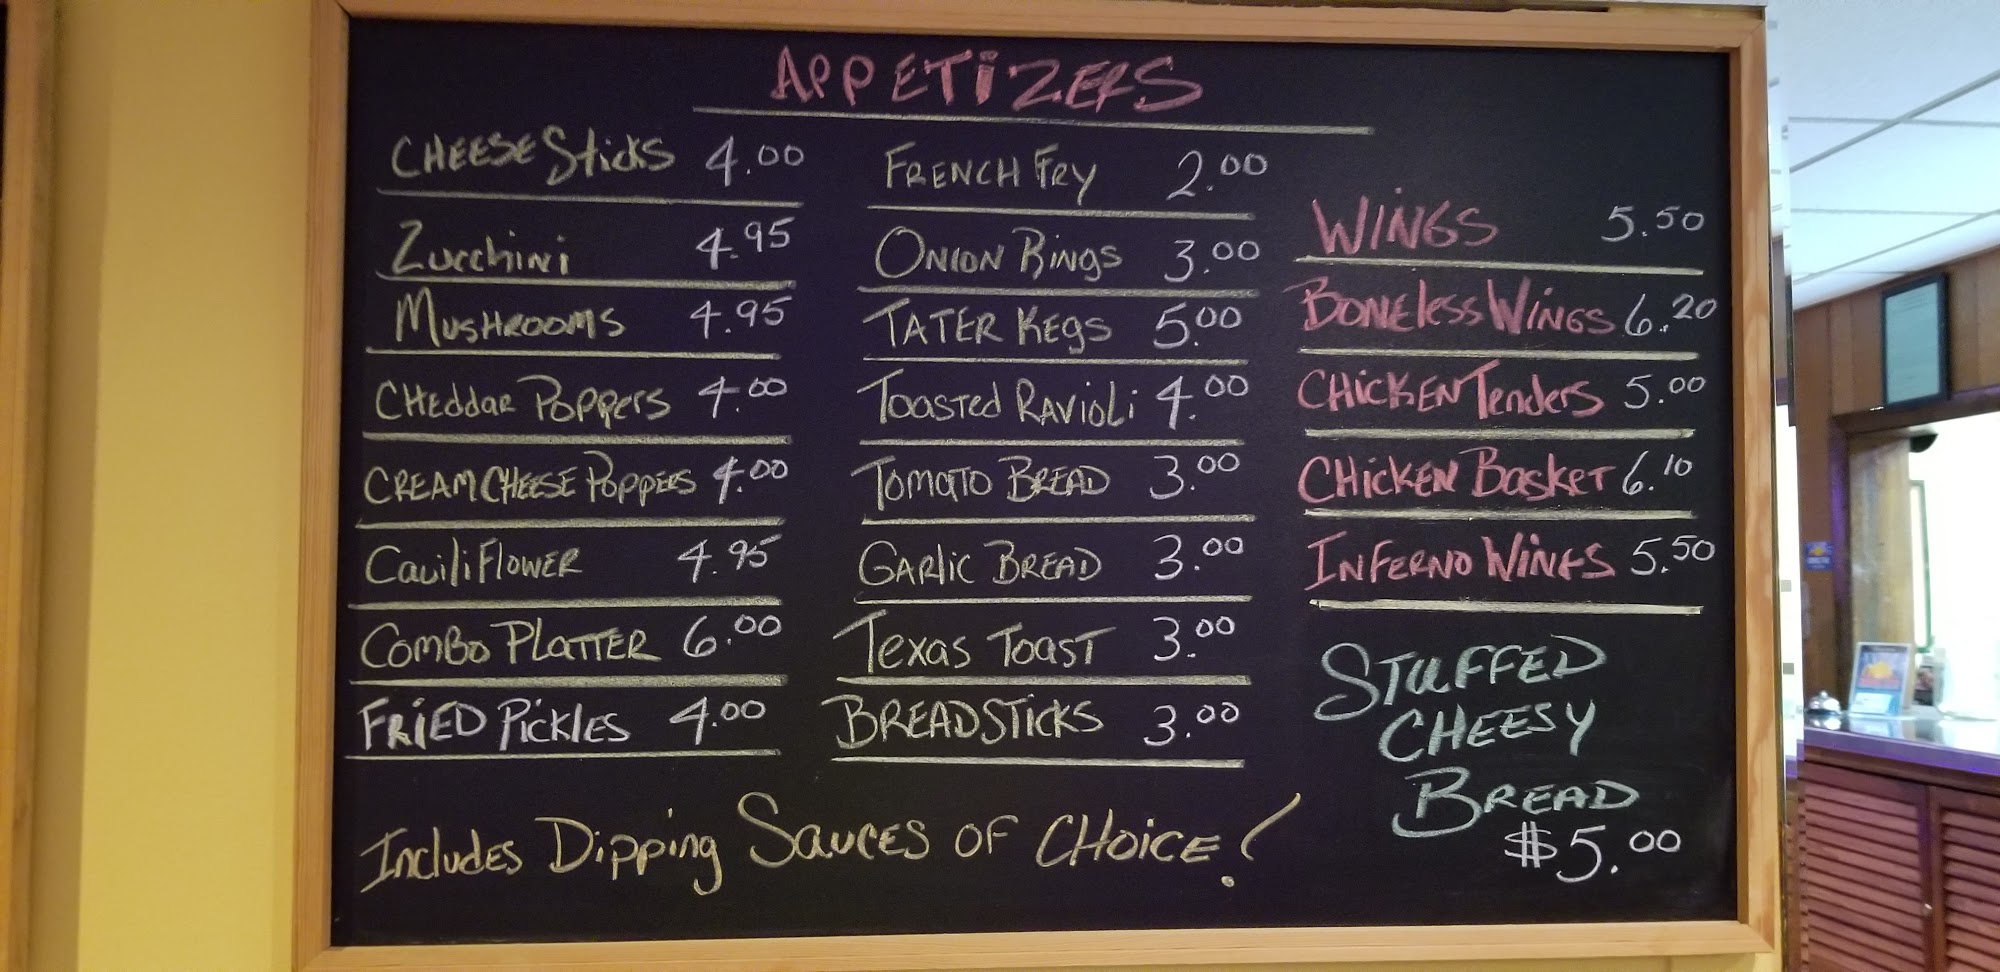 APPETiZERS
CHEESE Sticks 4.00
Zucchini 4.95
MUSHROOMS 4.95
CHeddar Poppers 4.00
CREAM CHEESE Poppers 4.00
CauiliFlower 4.95
Combo Platter 6.00
FRiED Pickles 4.00
FRENCH FRY 2.00
ONION Rings 3.00
TATER Kegs 5.00
Toasted Ravioli 4.00
Tomato BREAD 3.00
GARlic BREAD 3.00
Texas Toast 3.00
BREADSTICKS 3.00
WiNGS 5.50
BONEless WiNGS 6.20
CHiCKEN Tenders 5.00
CHICKEN Basket 6.10
INFERNO WiNGS 5.50
STUFFED
CHEESY
BREAD
$5.00
Includes Dipping Sauces OF CHOICE!